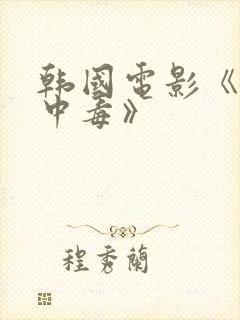 韩國電影《
中毒》
程秀蘭